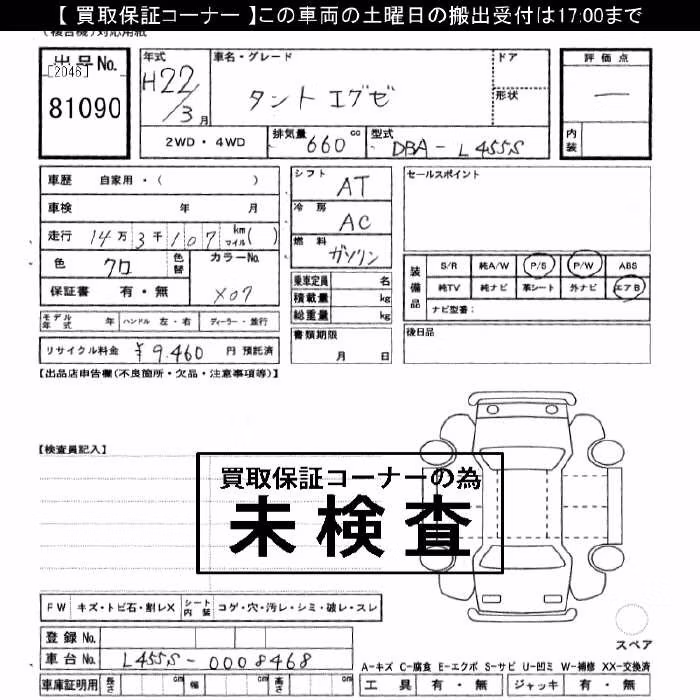 【 買取保証コーナー 】この車両の土曜日の搬出受付は17:00まで
(複合機)対応用紙
出品No.
[2046]
81090
年式
H22/3月
車名・グレード
タント エグゼ
ドア
形状
評価点
一
内装
2WD・4WD
排気量 660 cc
型式 DBA-L455S
車歴 自家用・( )
車検 年 月
走行 14万3千107 km マイル( )
色 クロ
色替
カラーNo. X07
保証書 有・無
シフト AT
冷房 AC
燃料 ガソリン
乗車定員 名
積載量 kg
総重量 kg
セールスポイント
装備品
S/R 純A/W P/S P/W ABS
純TV 純ナビ 革シート 外ナビ エアB
ナビ型番:
モデル年式 年 ハンドル 左・右 ディーラー・並行
リサイクル料金 ¥9.460 円 預託済
書類期限
月 日
後日品
【出品店申告欄(不良箇所・欠品・注意事項等)】
【検査員記入】
買取保証コーナーの為
未検査
FW キズ・トビ石・割レX シート内装 コゲ・穴・汚レ・シミ・破レ・スレ
スペア
登録No.
車台No. L455S-0008468
A-キズ C-腐食 E-エクボ S-サビ U-凹ミ W-補修 XX-交換済
車庫証明用 長さ cm 幅 cm 高さ cm
工具 有・無 ジャッキ 有・無